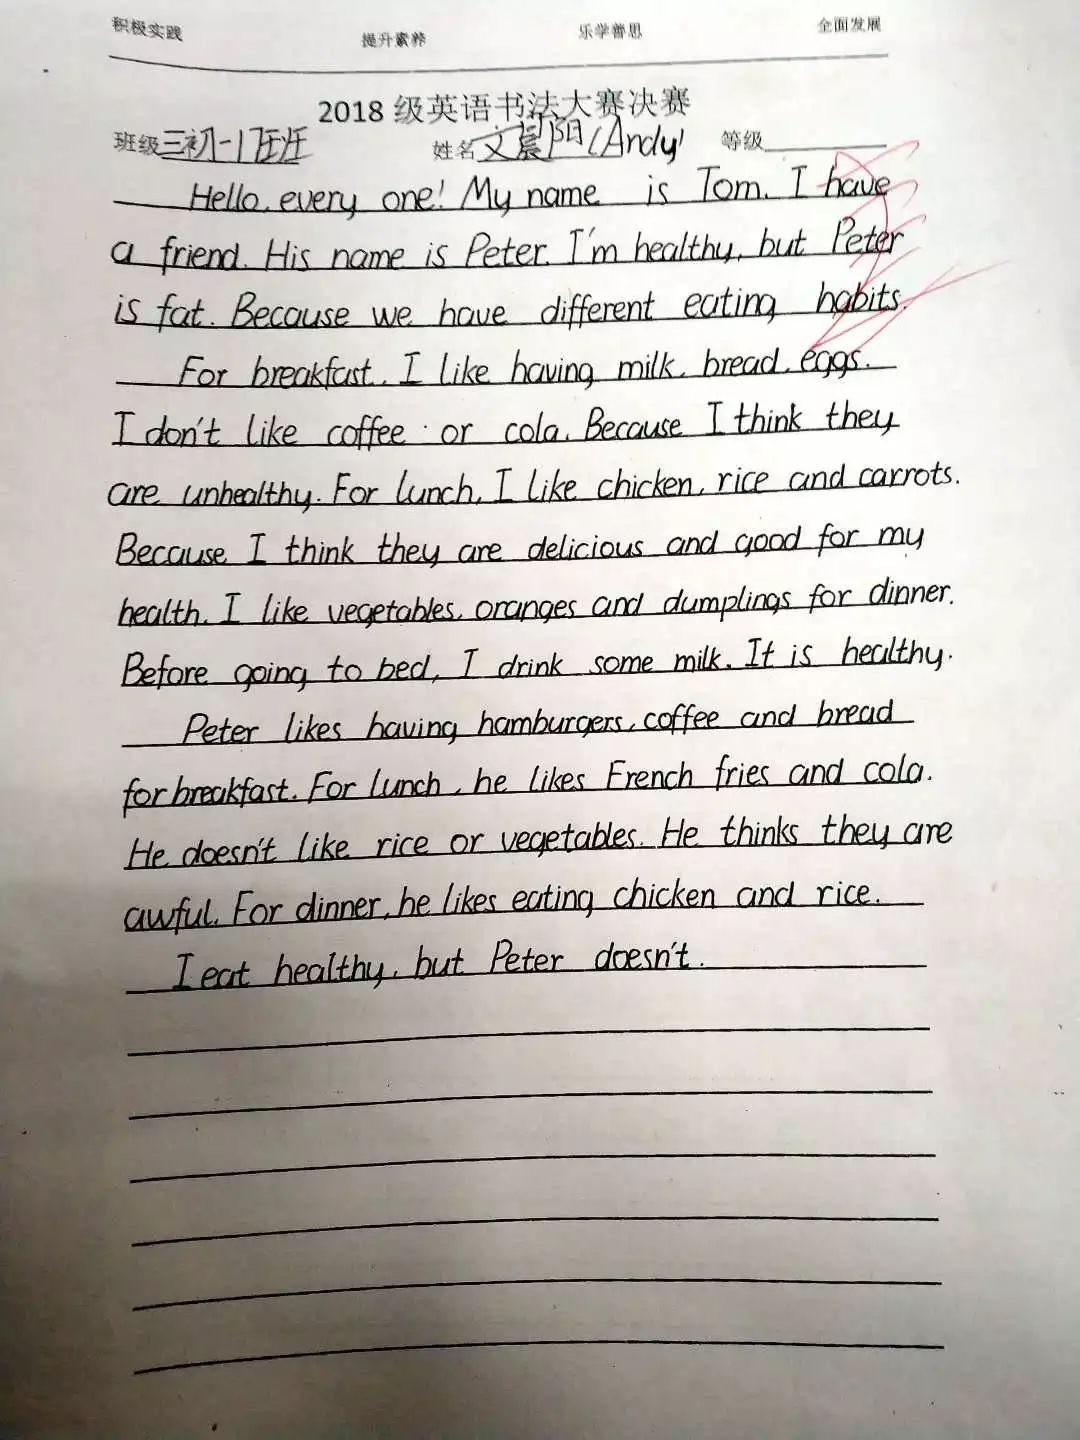 积极实践 提升素养 乐学善思 全面发展
2018 级英语书法大赛决赛
班级三初一17班 姓名文晨阳(Andy) 等级
Hello, every one! My name is Tom. I have
a friend. His name is Peter. I'm healthy, but Peter
is fat. Because we have different eating habits.
For breakfast, I like having milk, bread, eggs.
I don't like coffee or cola. Because I think they
are unhealthy. For lunch, I like chicken, rice and carrots.
Because I think they are delicious and good for my
health. I like vegetables, oranges and dumplings for dinner.
Before going to bed, I drink some milk. It is healthy.
Peter likes having hamburgers, coffee and bread
for breakfast. For lunch, he likes French fries and cola.
He doesn't like rice or vegetables. He thinks they are
awful. For dinner, he likes eating chicken and rice.
I eat healthy, but Peter doesn't.